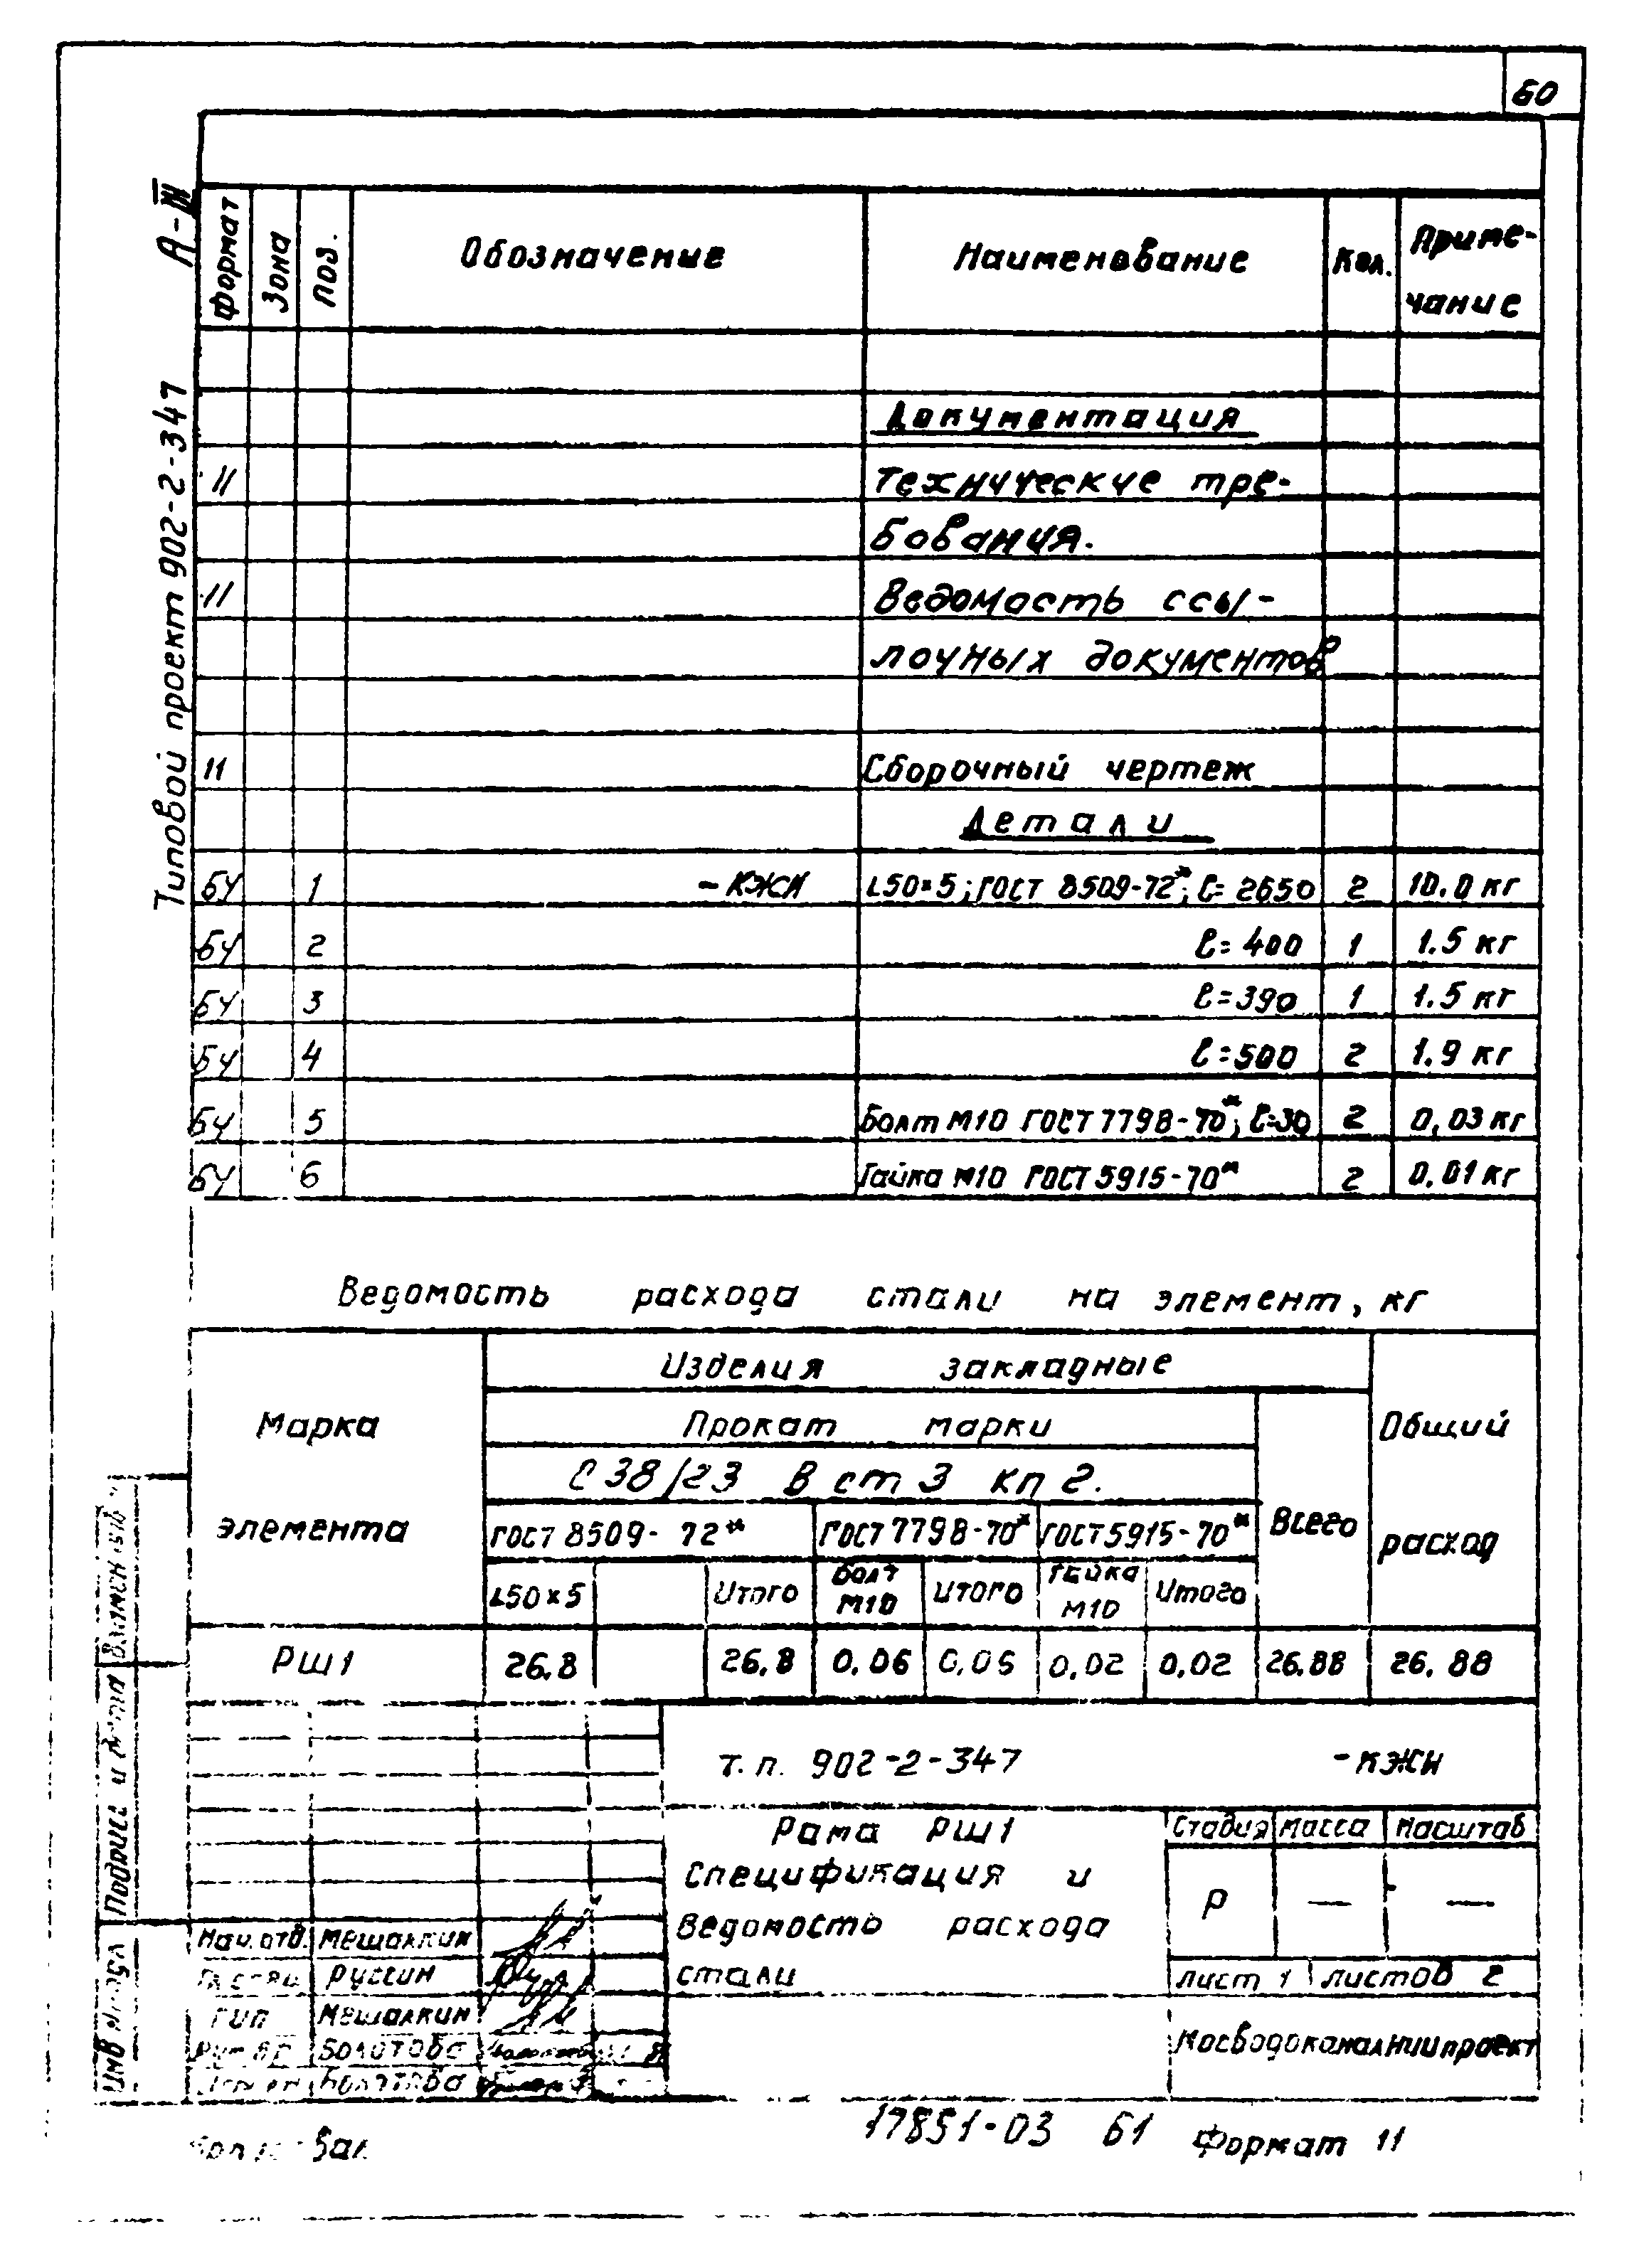 60
А-III
Типовой проект 902-2-347
Формат Зона Поз. Обозначение Наименование Кол. Приме-
чание
Документация
11 Технические тре-
бования.
11 Ведомость ссы-
лочных документов
11 Сборочный чертеж
Детали
БЧ 1 -КЖИ L50×5; ГОСТ 8509-72*; ℓ= 2650 2 10.0 кг
БЧ 2 ℓ= 400 1 1.5 кг
БЧ 3 ℓ=390 1 1.5 кг
БЧ 4 ℓ=500 2 1.9 кг
БЧ 5 Болт М10 ГОСТ 7798-70*; ℓ=30 2 0,03 кг
БЧ 6 Гайка М10 ГОСТ 5915-70* 2 0.01 кг
Ведомость расхода стали на элемент, кг
Марка
элемента
Изделия закладные
Общий
расход
Прокат марки
Всего
С 38/23 В ст 3 кп 2.
ГОСТ 8509-72* ГОСТ 7798-70* ГОСТ 5915-70*
L50×5 Итого Болт
М10 Итого Гайка
М10 Итого
РШ1 26.8 26.8 0.06 0,06 0,02 0.02 26.88 26.88
Т.п. 902-2-347 -КЖИ
Рама РШ1
Спецификация и
Ведомость расхода
стали
Стадия Масса Масштаб
Р — —
Лист 1 Листов 2
Мосводоканалниипроект
Нач. отд. Мешалкин
Руссин
ГИП Мешалкин
Болотова
Болотова
Подпись и дата
17851-03 61 Формат 11